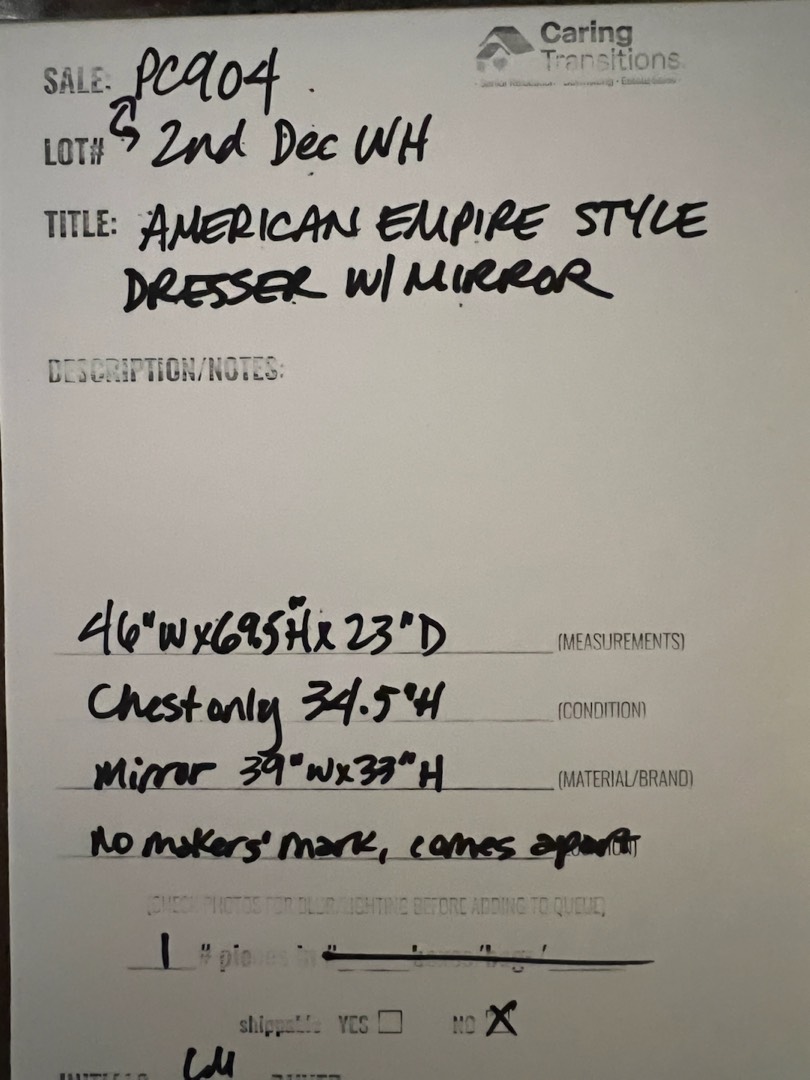 Caring
Transitions
SALE: PC904
LOT# 2nd Dec WH
TITLE: AMERICAN EMPIRE STYLE
DRESSER W/ MIRROR
DESCRIPTION/NOTES:
46"W x 69.5"H x 23"D (MEASUREMENTS)
Chest only 34.5"H (CONDITION)
Mirror 39"W x 33"H (MATERIAL/BRAND)
No makers' mark, comes apart
(CHECK PHOTOS FOR BLUR/LIGHTING BEFORE ADDING TO QUEUE)
1 # pieces in boxes/bags/
shippable YES NO X
INITIALS LM